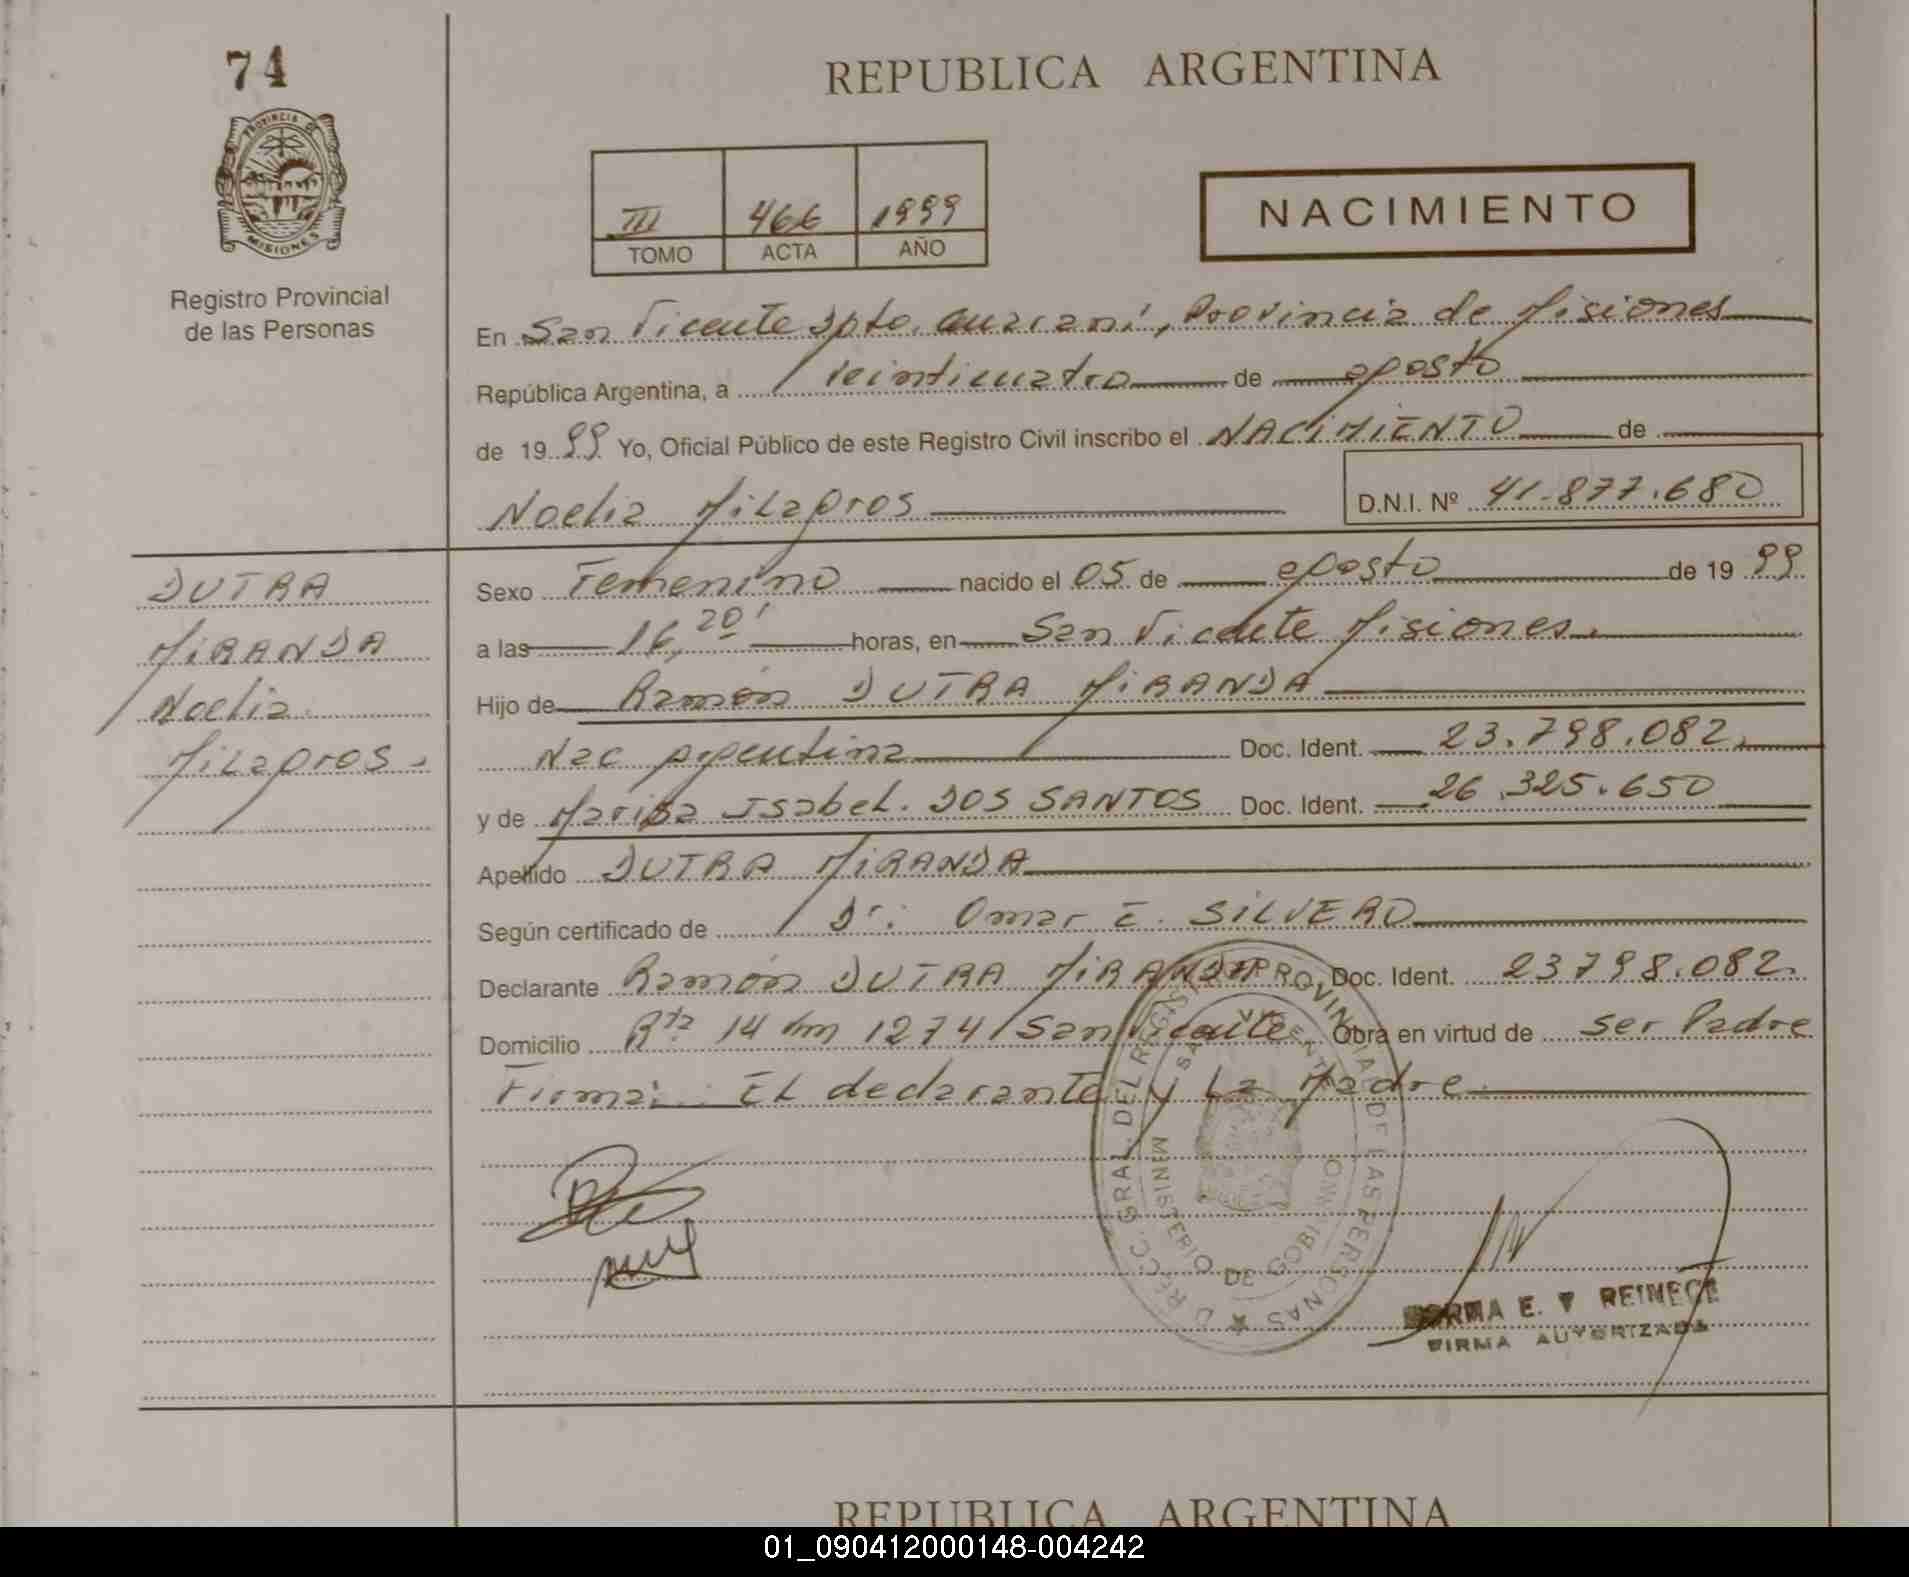 74
REPUBLICA ARGENTINA
PROVINCIA DE
MISIONES
Registro Provincial
de las Personas
III 466 1999
TOMO ACTA AÑO
NACIMIENTO
En San Vicente Dpto. Guaraní, Provincia de Misiones
República Argentina, a veinticuatro de agosto
de 1999 Yo, Oficial Público de este Registro Civil inscribo el NACIMIENTO de
Noelia Milagros D.N.I. Nº 41.877.680
DUTRA
MIRANDA
Noelia
Milagros.
Sexo Femenino nacido el 05 de agosto de 1999
a las 16,20' horas, en San Vicente Misiones.
Hijo de Ramón DUTRA MIRANDA
Nac argentina Doc. Ident. 23.798.082.
y de Marisa Isabel. DOS SANTOS Doc. Ident. 26.325.650
Apellido DUTRA MIRANDA
Según certificado de Dr: Omar E. SILVERO
Declarante Ramón DUTRA MIRANDA Doc. Ident. 23798.082.
Domicilio Rta 14 km 1274 San Vicente Obra en virtud de ser Padre
Firma: El declarante y La Madre.
DIRECC. GRAL. DEL REGISTRO PROVINCIAL DE LAS PERSONAS
SAN VICENTE
MINISTERIO DE GOBIERNO
E. V REINECE
FIRMA AUTORIZADA
REPUBLICA ARGENTINA
01_090412000148-004242